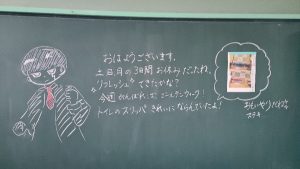 おはようございます。
土日月の3日間お休みだったね。
"リフレッシュ"できたかな?
今週がんばればゴールデンウィーク!
トイレのスリッパきれいにならんでいたよ!
おもいやりだね。
ステキ